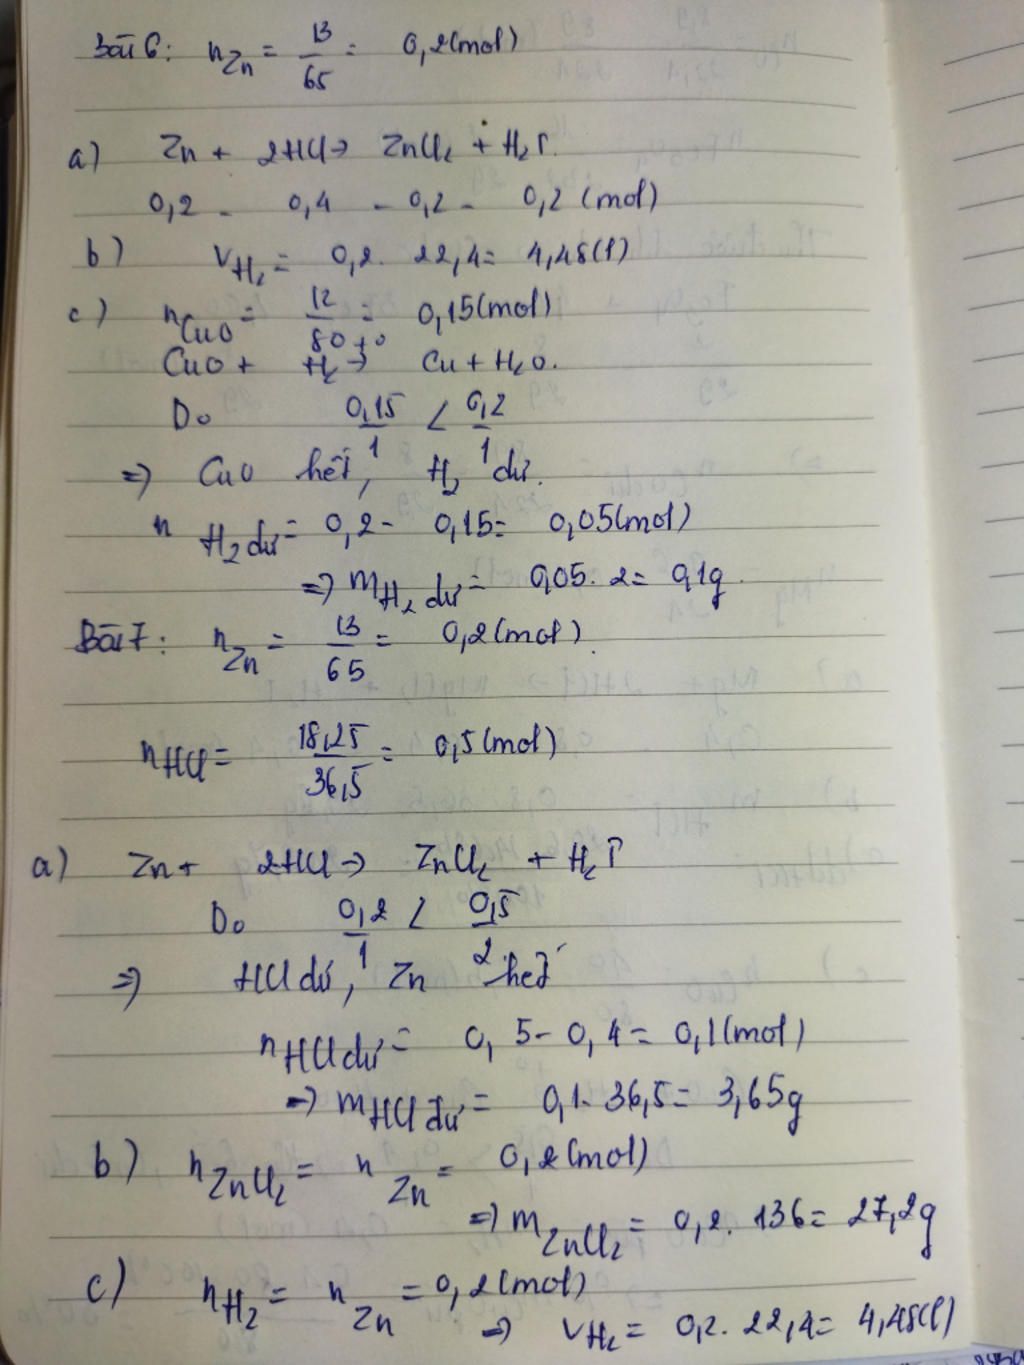 Bài 6: nZn = 13/65 = 0,2(mol)
a) Zn + 2HCl → ZnCl2 + H2↑.
0,2 - 0,4 - 0,2 - 0,2 (mol)
b) VH2 = 0,2. 22,4 = 4,48(l)
c) nCuO = 12/80 = 0,15(mol)
CuO + H2 →t° Cu + H2O.
Do 0,15/1 < 0,2/1
=> CuO hết, H2 dư.
nH2 dư = 0,2 - 0,15 = 0,05(mol)
=> mH2 dư = 0,05. 2 = 0,1g.
Bài 7: nZn = 13/65 = 0,2(mol).
nHCl = 18,25/36,5 = 0,5(mol)
a) Zn + 2HCl → ZnCl2 + H2↑
Do 0,2/1 < 0,5/2
=> HCl dư, Zn hết
nHCl dư = 0,5 - 0,4 = 0,1(mol)
=> mHCl dư = 0,1. 36,5 = 3,65g
b) nZnCl2 = nZn = 0,2(mol)
=> mZnCl2 = 0,2. 136 = 27,2g
c) nH2 = nZn = 0,2(mol)
=> VH2 = 0,2. 22,4 = 4,48(l)